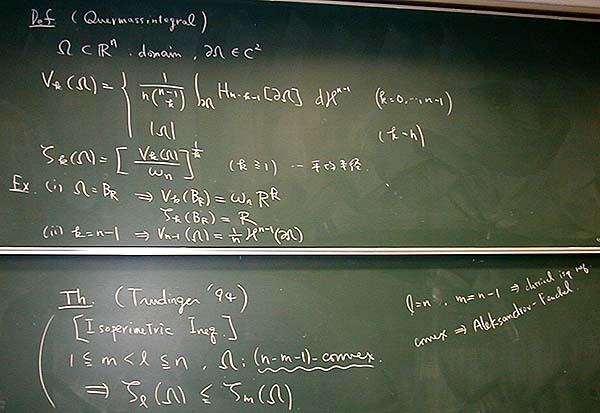 Def (Quermassintegral)
Ω ⊂ ℝⁿ : domain, ∂Ω ∈ C²
V_k(Ω) = { 1/(n(n-1 k)) ∫_∂Ω H_{n-k-1}[∂Ω] dℋ^{n-1} (k=0,…,n-1)
|Ω| (k=n)
ζ_k(Ω) = [V_k(Ω)/ω_n]^{1/k} (k≧1) … 平均半径.
Ex. (i) Ω = B_R ⇒ V_k(B_R) = ω_n R^k
ζ_k(B_R) = R
(ii) k=n-1 ⇒ V_{n-1}(Ω) = 1/n ℋ^{n-1}(∂Ω)
Th. (Trudinger '94)
[Isoperimetric Ineq.]
1 ≦ m < l ≦ n, Ω: (n-m-1)-convex.
⇒ ζ_l(Ω) ≦ ζ_m(Ω)
l=n, m=n-1 ⇒ classical isop. ineq.
convex ⇒ Aleksandrov-Fenchel